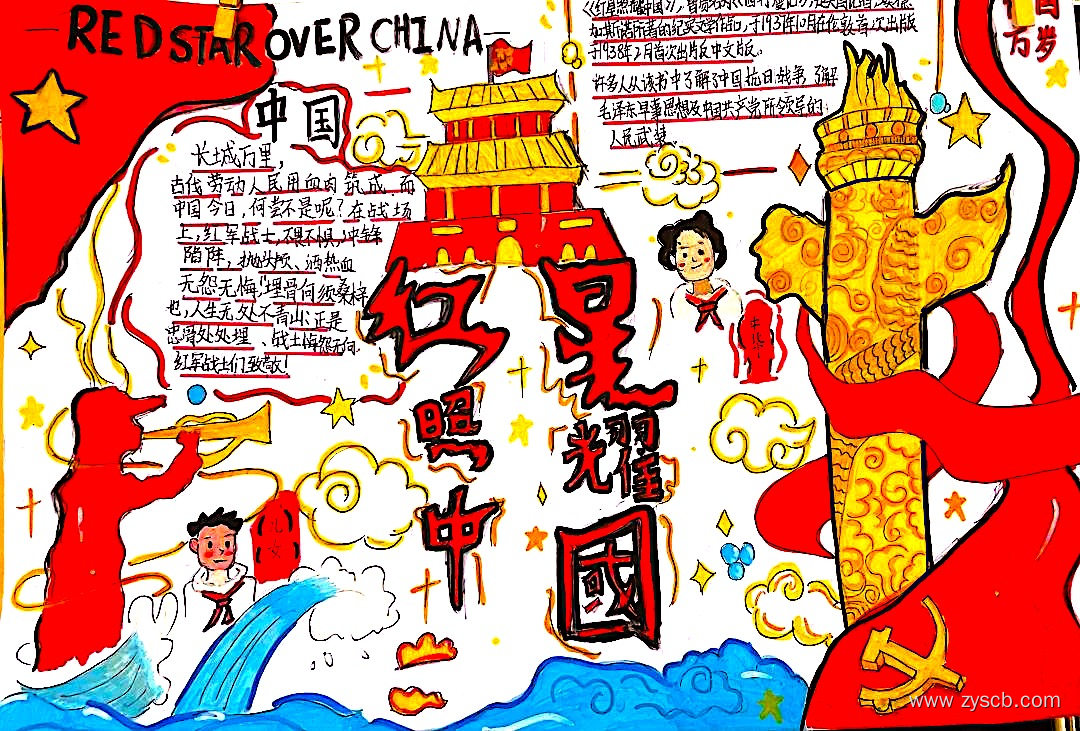 RED STAR OVER CHINA
中国
长城万里，
古代劳动人民用血肉筑成，而
中国今日，何尝不是呢？在战场
上，红军战士，不畏不惧，冲锋
陷阵，抛头颅、洒热血
无怨无悔，"埋骨何须桑梓
也，人生无处不青山。"正是
忠骨处处埋、战士
红军战士们致敬！
《红星照耀中国》，曾
斯诺所著的纪实文学作品，于1937年10月在伦敦首次出版
于1938年2月首次出版中文版。
许多人从该书中了解了中国抗日战争，了解
毛泽东早事思想及中国共产党所领导的：
人民武装
万岁
红星
照耀
中國
www.zyscb.com